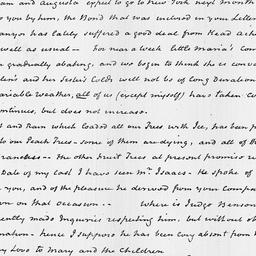 am and Augusta expect to go to New York next month
to you by him, the Bond that was inclosed in your Letter
anyox has lately suffered a good deal from Head Ache
well as usual — For near a week little Maria's Con
n gradually abating. and we begin to think she is conva
den's and her Sister's Colds will not be of long Duration
variable weather, all of us (except myself) have taken Co
continues, but does not increase.
t and rain which loaded all our Trees with Ice, has been
to our Peach Trees — some of them are dying, and all of th
ranches — the other fruit Trees at present promise
Date of my last I have seen Mr. Isaacs — He spoke of
you, and of the pleasure he derived from your Compa
on on that occasion — Where is Judge Benson
ently made Inquiries respecting him, but without ob
mation — hence I suppose he has been long absent from
y Love to Mary and the Children